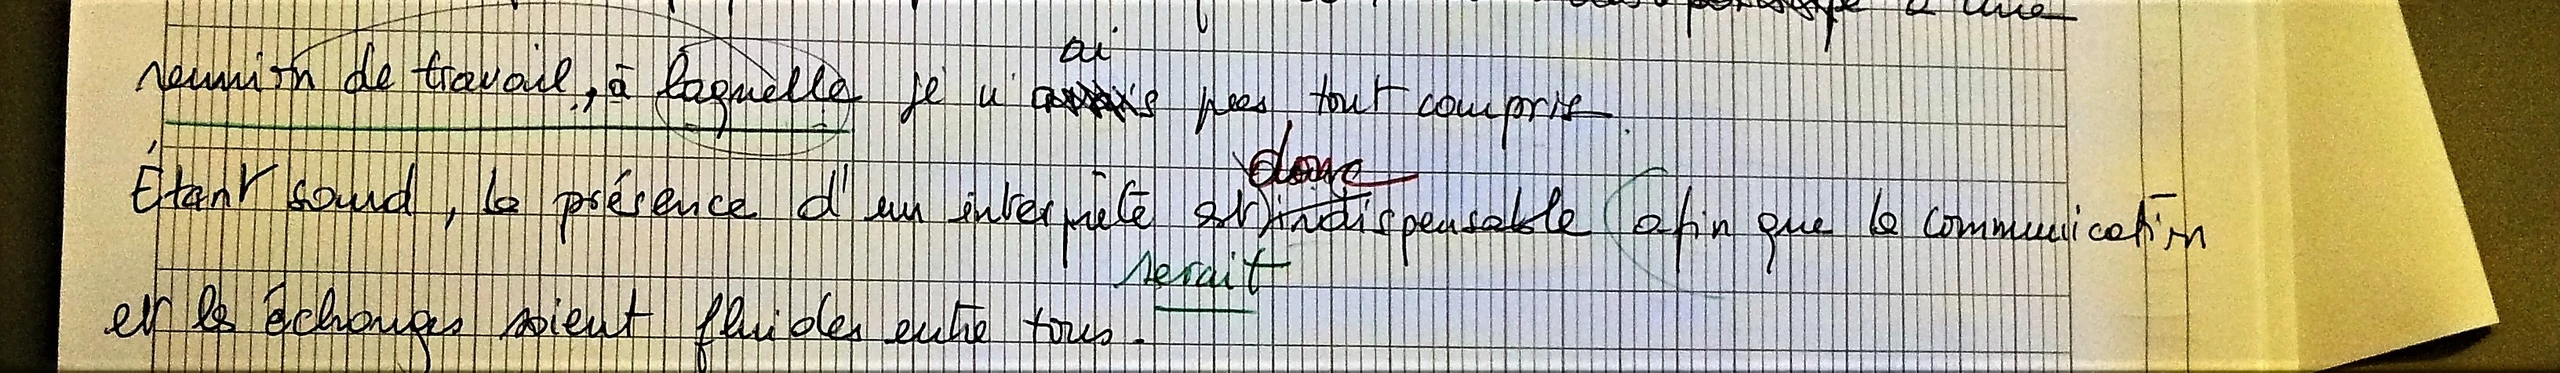 à une
réunion de travail, à laquelle je n' ai pas tout compris.
donc
Étant sourd, la présence d'un interprète est indispensable afin que la communication
serait
et les échanges soient fluides entre tous.